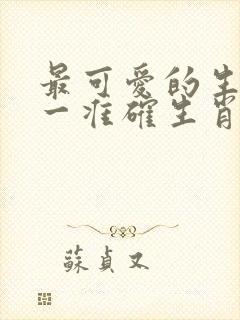 最可愛的生
一准確生肖
蘇貞又